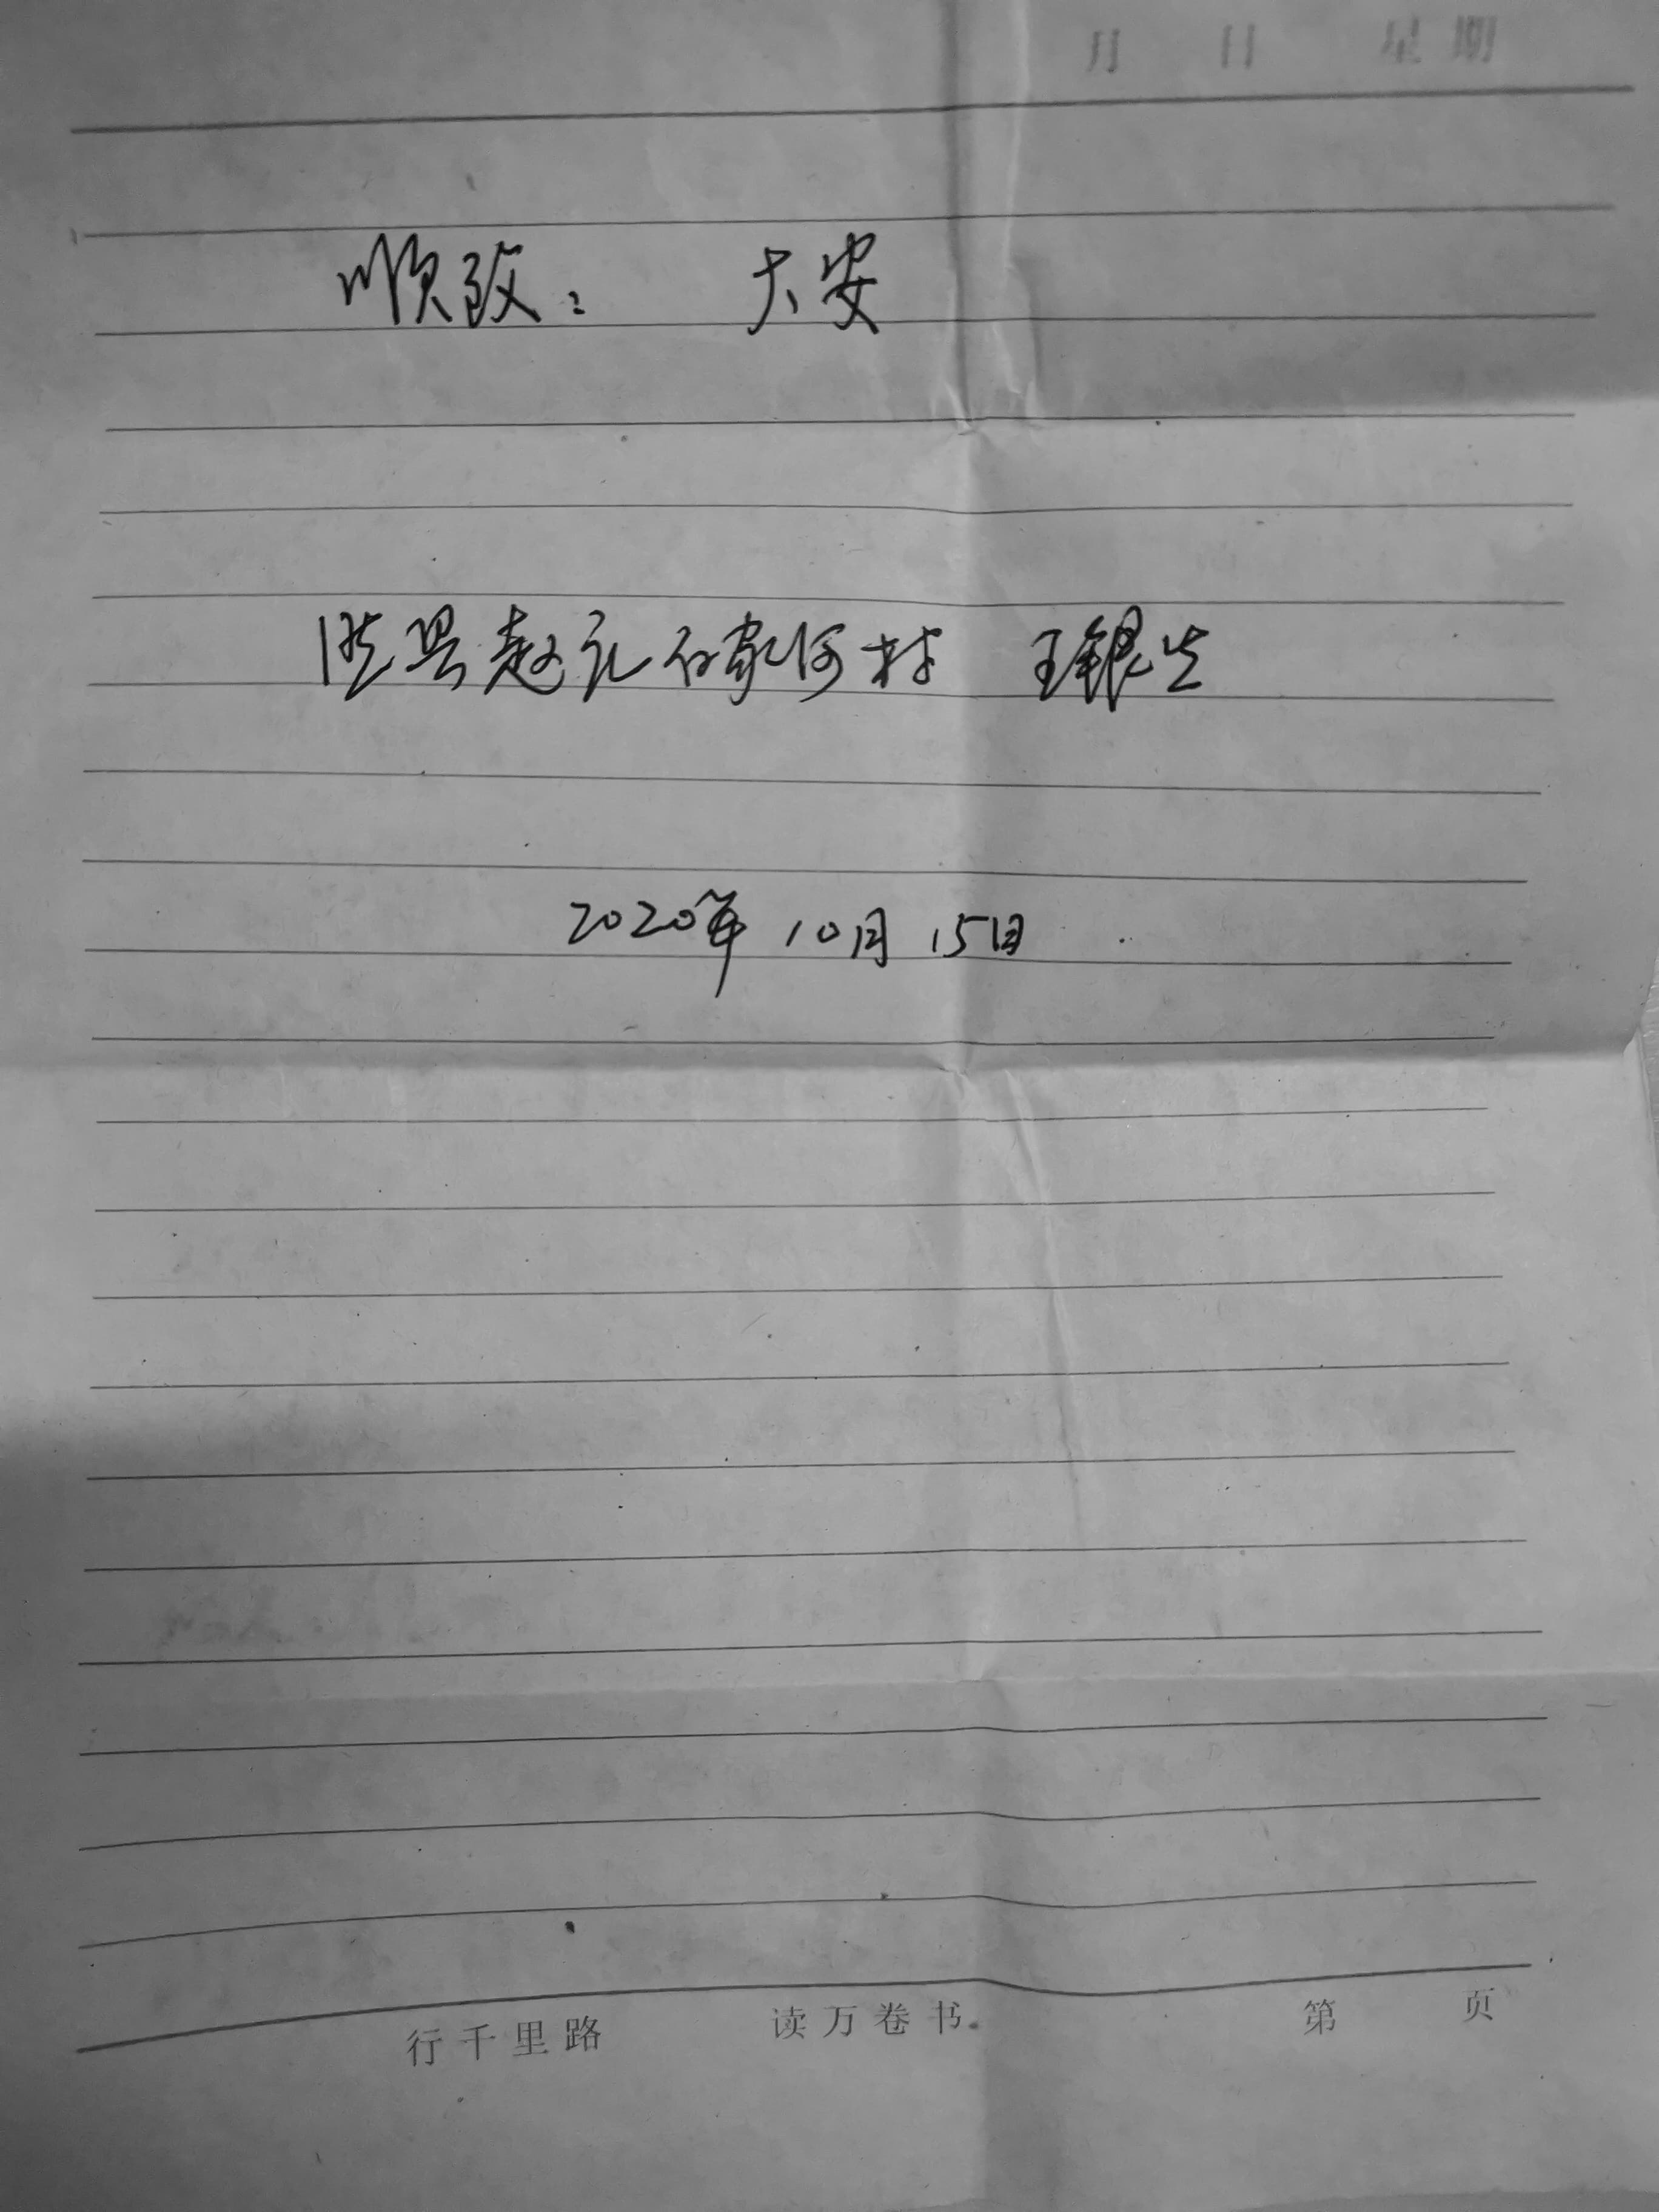 月 日 星期
顺致： 大安
县赵礼石家河村 王银生
2020年 10月 15日
行千里路 读万卷书。 第 页